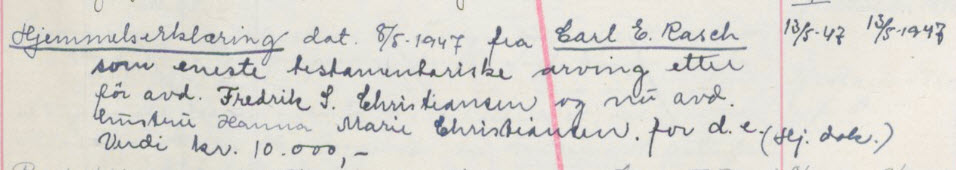 Hjemmelserklæring dat. 8/5-1947 fra Carl E. Rasch 13/5-47 13/5-1947
som eneste testamentariske arving etter
för avd. Fredrik S. Christiansen og nu avd.
hustru Hanna Marie Christiansen, for d. e. (Hj. dok.)
Verdi kr. 10.000,-